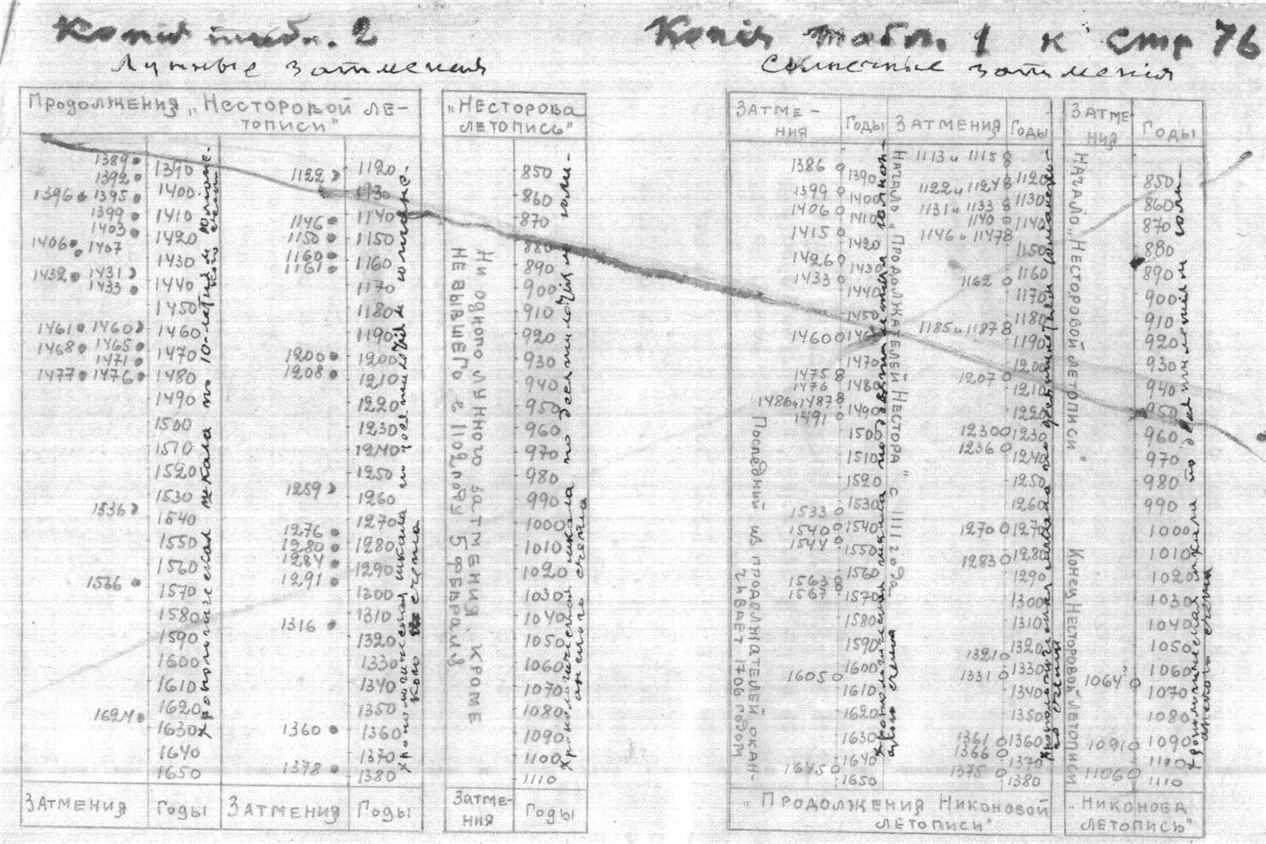 Копія табл. 2
Лунные затменія
Продолжения „Несторовой ле-
тописи"
„Несторова
летопись"
1389
1392
1396 1395
1399
1403
1406 1407
1432 1431
1433
1461 1460
1468 1465
1471
1477 1476
1536
1566
1624
1390
1400
1410
1420
1430
1440
1450
1460
1470
1480
1490
1500
1510
1520
1530
1540
1550
1560
1570
1580
1590
1600
1610
1620
1630
1640
1650
1122
1146
1150
1160
1161
1200
1208
1259
1276
1280
1284
1291
1316
1360
1378
1120
1130
1140
1150
1160
1170
1180
1190
1200
1210
1220
1230
1240
1250
1260
1270
1280
1290
1300
1310
1320
1330
1340
1350
1360
1370
1380
Ни одного лунного затмения, кроме
не бывшего в 1102 году 5 февраля
850
860
870
880
890
900
910
920
930
940
950
960
970
980
990
1000
1010
1020
1030
1040
1050
1060
1070
1080
1090
1100
1110
Затмения
Годы
Затмения
Годы
Затме-
ния
Годы
Копія табл. 1 к стр 76
Солнечные затменія
Затме-
ния
Годы
Затмения
Годы
Затме-
ния
Годы
1386
1399
1406
1415
1426
1433
1460
1475
1476
1486 и 1487
1491
1533
1540
1544
1563
1567
1605
1645
Последний из продолжателей окан-
чивает 1706 годом
1390
1400
1410
1420
1430
1440
1450
1460
1470
1480
1490
1500
1510
1520
1530
1540
1550
1560
1570
1580
1590
1600
1610
1620
1630
1640
1650
Начало „Продолжателей Нестора" с 1111 года
1113 и 1115
1122 и 1124
1131 и 1133
1140
1146 и 1147
1162
1185 и 1187
1207
1230
1236
1270
1283
1321
1331
1361
1366
1375
1120
1130
1140
1150
1160
1170
1180
1190
1200
1210
1220
1230
1240
1250
1260
1270
1280
1290
1300
1310
1320
1330
1340
1350
1360
1370
1380
Начало „Несторовой летописи"
Конец Несторовой летописи
1064?
1091
1106
850
860
870
880
890
900
910
920
930
940
950
960
970
980
990
1000
1010
1020
1030
1040
1050
1060
1070
1080
1090
1100
1110
„Продолжения Никоновой
летописи"
„Никонова
летопись"